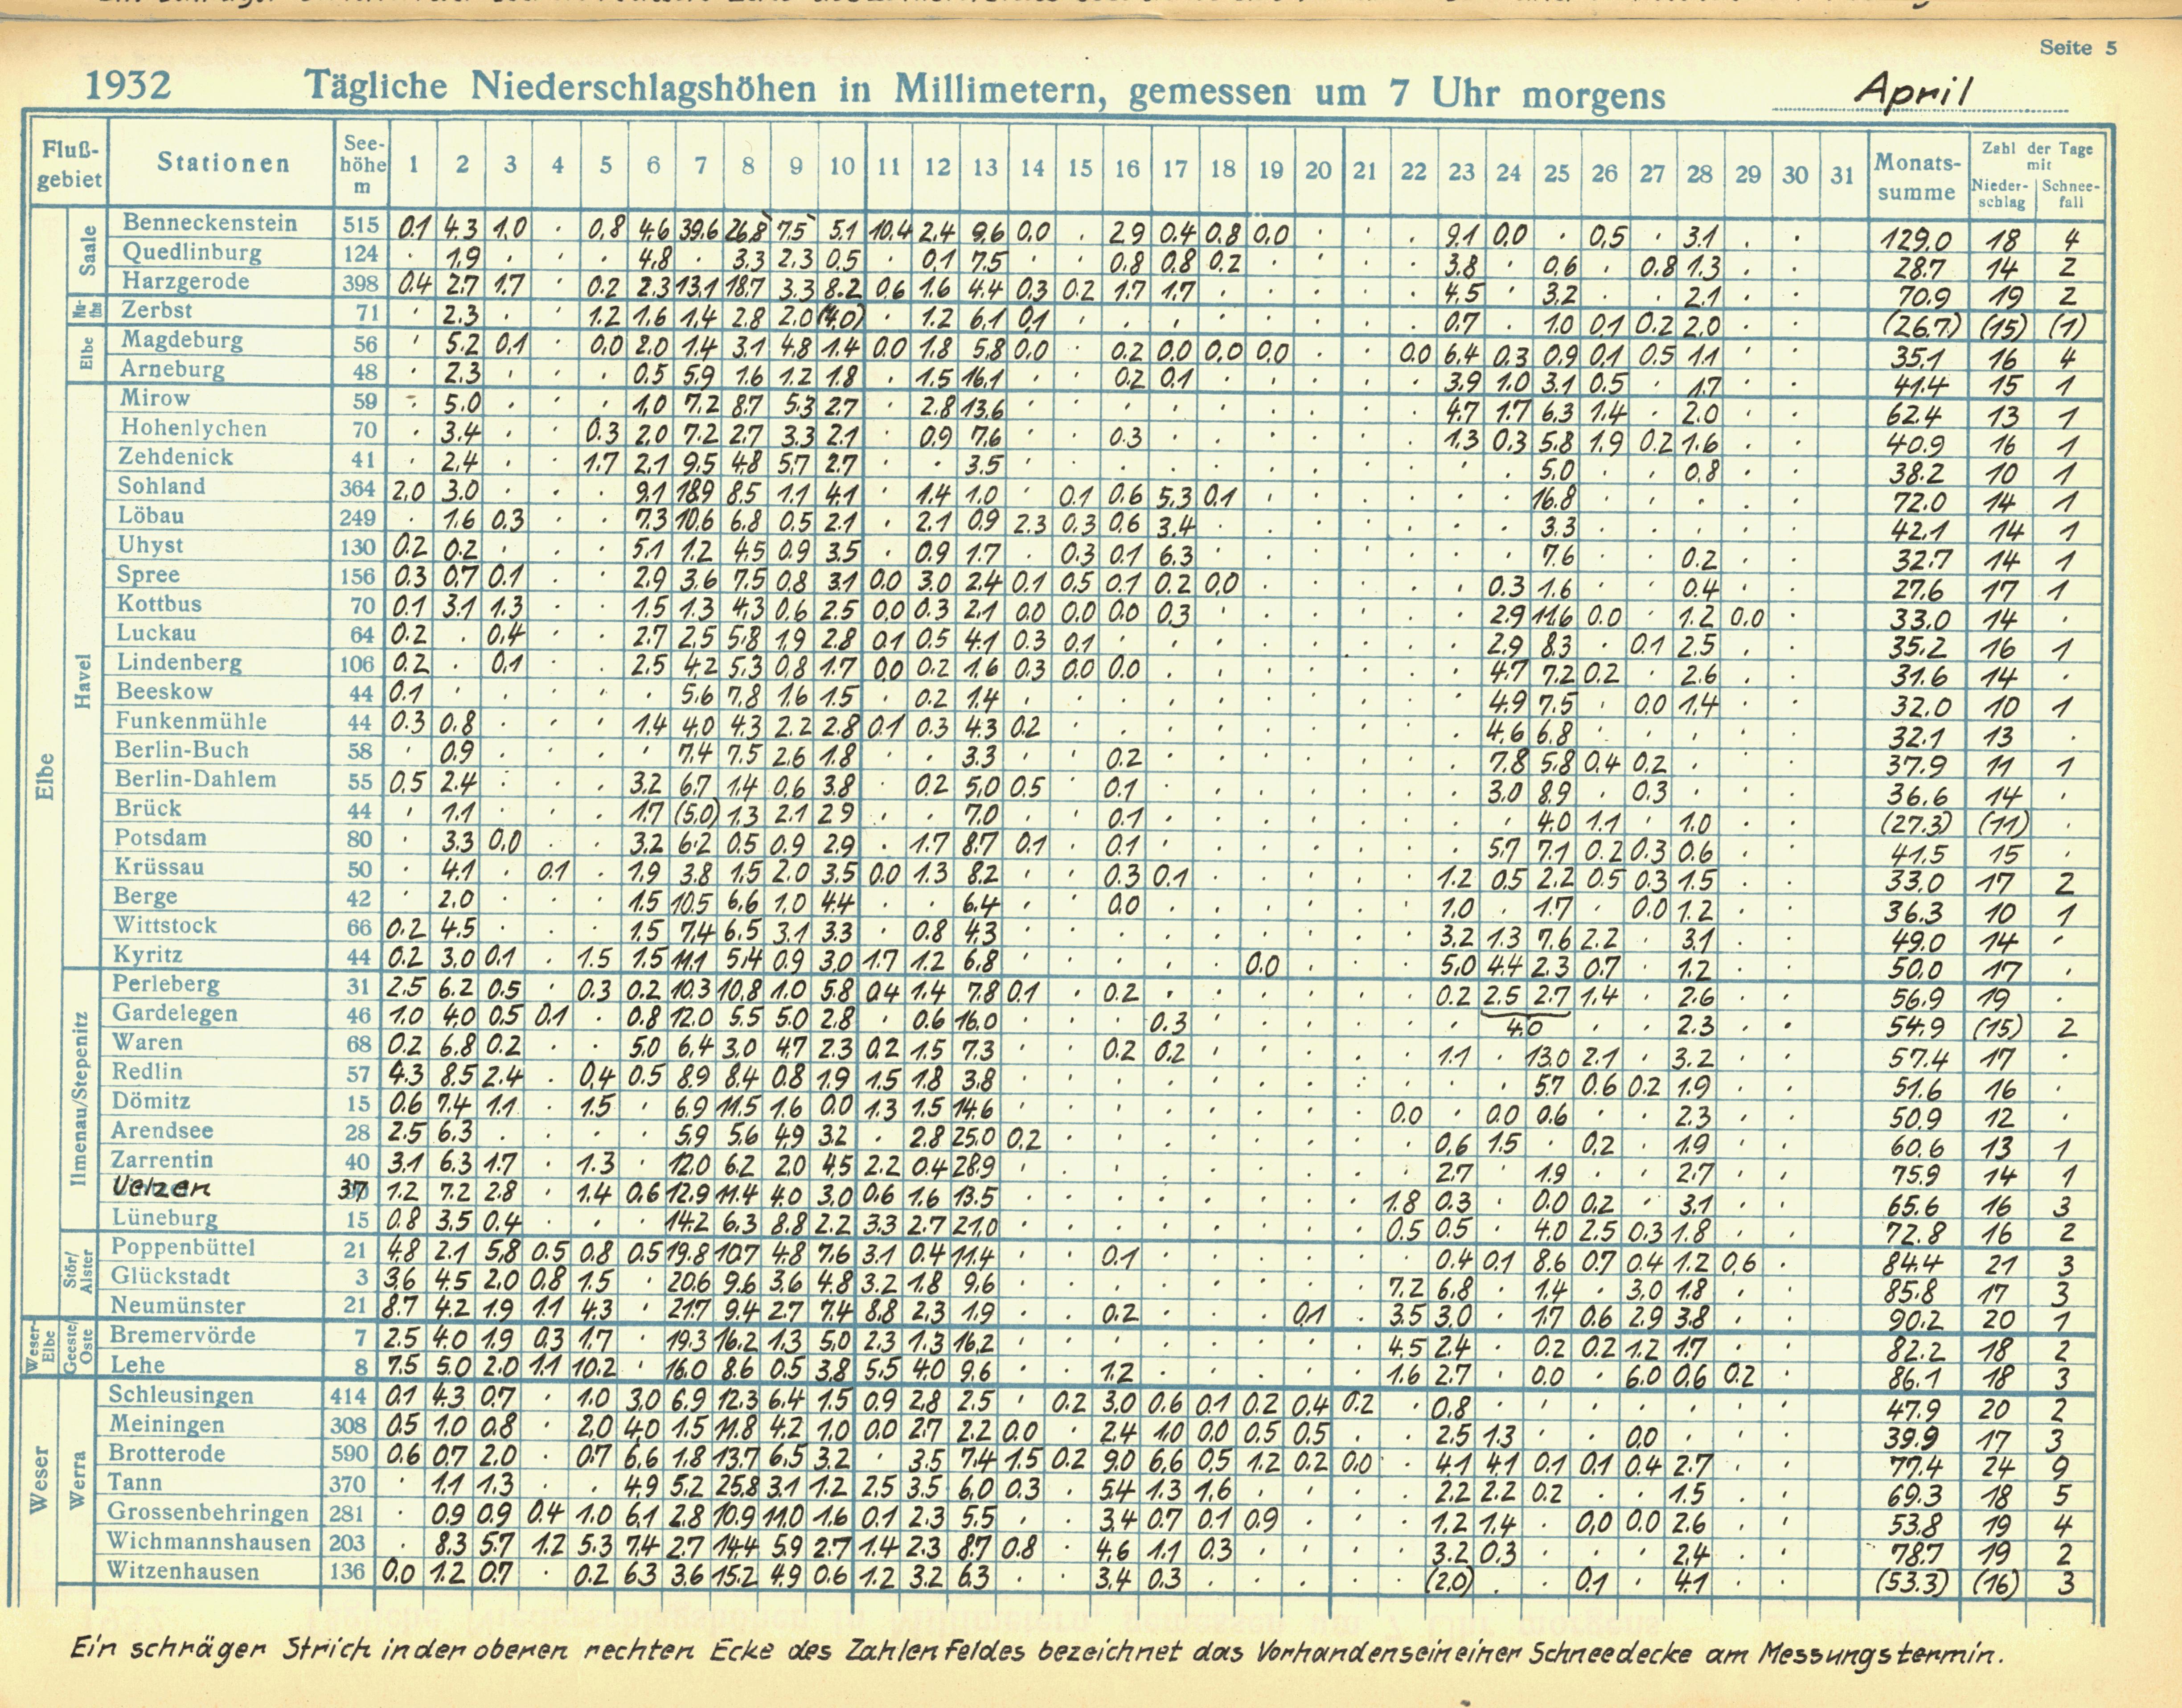 Seite 5
1932 Tägliche Niederschlagshöhen in Millimetern, gemessen um 7 Uhr morgens April
Fluß-gebiet Stationen See-höhe m 1 2 3 4 5 6 7 8 9 10 11 12 13 14 15 16 17 18 19 20 21 22 23 24 25 26 27 28 29 30 31 Monats-summe Zahl der Tage mit Nieder-schlag Schnee-fall
Elbe
Saale
Benneckenstein 515 0.1 4.3 1.0 . 0.8 4.6 39.6 26.8 7.5 5.1 10.4 2.4 9.6 0.0 . 2.9 0.4 0.8 0.0 . . . 9.1 0.0 . 0.5 . 3.1 . . 129.0 18 4
Quedlinburg 124 . 1.9 . . . 4.8 . 3.3 2.3 0.5 . 0.1 7.5 . . 0.8 0.8 0.2 . . . . 3.8 . 0.6 . 0.8 1.3 . . 28.7 14 2
Harzgerode 398 0.4 2.7 1.7 . 0.2 2.3 13.1 18.7 3.3 8.2 0.6 1.6 4.4 0.3 0.2 1.7 1.7 . . . . . 4.5 . 3.2 . . 2.1 . . 70.9 19 2
Nu-the
Zerbst 71 . 2.3 . . 1.2 1.6 1.4 2.8 2.0 (4.0) . 1.2 6.1 0.1 . . . . . . . . 0.7 . 1.0 0.1 0.2 2.0 . . (26.7) (15) (1)
Elbe
Magdeburg 56 . 5.2 0.1 . 0.0 2.0 1.4 3.1 4.8 1.4 0.0 1.8 5.8 0.0 . 0.2 0.0 0.0 0.0 . . 0.0 6.4 0.3 0.9 0.1 0.5 1.1 . . 35.1 16 4
Arneburg 48 . 2.3 . . . 0.5 5.9 1.6 1.2 1.8 . 1.5 16.1 . . 0.2 0.1 . . . . . 3.9 1.0 3.1 0.5 . 1.7 . . 41.4 15 1
Havel
Mirow 59 . 5.0 . . . 1.0 7.2 8.7 5.3 2.7 . 2.8 13.6 . . . . . . . . . 4.7 1.7 6.3 1.4 . 2.0 . . 62.4 13 1
Hohenlychen 70 . 3.4 . . 0.3 2.0 7.2 2.7 3.3 2.1 . 0.9 7.6 . . 0.3 . . . . . . 1.3 0.3 5.8 1.9 0.2 1.6 . . 40.9 16 1
Zehdenick 41 . 2.4 . . 1.7 2.1 9.5 4.8 5.7 2.7 . . 3.5 . . . . . . . . . . . 5.0 . . 0.8 . . 38.2 10 1
Sohland 364 2.0 3.0 . . . 9.1 18.9 8.5 1.1 4.1 . 1.4 1.0 . 0.1 0.6 5.3 0.1 . . . . . . 16.8 . . . . . 72.0 14 1
Löbau 249 . 1.6 0.3 . . 7.3 10.6 6.8 0.5 2.1 . 2.1 0.9 2.3 0.3 0.6 3.4 . . . . . . . 3.3 . . . . . 42.1 14 1
Uhyst 130 0.2 0.2 . . . 5.1 1.2 4.5 0.9 3.5 . 0.9 1.7 . 0.3 0.1 6.3 . . . . . . . 7.6 . . 0.2 . . 32.7 14 1
Spree 156 0.3 0.7 0.1 . . 2.9 3.6 7.5 0.8 3.1 0.0 3.0 2.4 0.1 0.5 0.1 0.2 0.0 . . . . . 0.3 1.6 . . 0.4 . . 27.6 17 1
Kottbus 70 0.1 3.1 1.3 . . 1.5 1.3 4.3 0.6 2.5 0.0 0.3 2.1 0.0 0.0 0.0 0.3 . . . . . . 2.9 11.6 0.0 . 1.2 0.0 . 33.0 14 .
Luckau 64 0.2 . 0.4 . . 2.7 2.5 5.8 1.9 2.8 0.1 0.5 4.1 0.3 0.1 . . . . . . . . 2.9 8.3 . 0.1 2.5 . . 35.2 16 1
Lindenberg 106 0.2 . 0.1 . . 2.5 4.2 5.3 0.8 1.7 0.0 0.2 1.6 0.3 0.0 0.0 . . . . . . . 4.7 7.2 0.2 . 2.6 . . 31.6 14 .
Beeskow 44 0.1 . . . . . 5.6 7.8 1.6 1.5 . 0.2 1.4 . . . . . . . . . . 4.9 7.5 . 0.0 1.4 . . 32.0 10 1
Funkenmühle 44 0.3 0.8 . . . 1.4 4.0 4.3 2.2 2.8 0.1 0.3 4.3 0.2 . . . . . . . . . 4.6 6.8 . . . . . 32.1 13 .
Berlin-Buch 58 . 0.9 . . . . 7.4 7.5 2.6 1.8 . . 3.3 . . 0.2 . . . . . . . 7.8 5.8 0.4 0.2 . . . 37.9 11 1
Berlin-Dahlem 55 0.5 2.4 . . . 3.2 6.7 1.4 0.6 3.8 . 0.2 5.0 0.5 . 0.1 . . . . . . . 3.0 8.9 . 0.3 . . . 36.6 14 .
Brück 44 . 1.1 . . . 1.7 (5.0) 1.3 2.1 2.9 . . 7.0 . . 0.1 . . . . . . . . 4.0 1.1 . 1.0 . . (27.3) (11) .
Potsdam 80 . 3.3 0.0 . . 3.2 6.2 0.5 0.9 2.9 . 1.7 8.7 0.1 . 0.1 . . . . . . . 5.7 7.1 0.2 0.3 0.6 . . 41.5 15 .
Krüssau 50 . 4.1 . 0.1 . 1.9 3.8 1.5 2.0 3.5 0.0 1.3 8.2 . . 0.3 0.1 . . . . . 1.2 0.5 2.2 0.5 0.3 1.5 . . 33.0 17 2
Berge 42 . 2.0 . . . 1.5 10.5 6.6 1.0 4.4 . . 6.4 . . 0.0 . . . . . . 1.0 . 1.7 . 0.0 1.2 . . 36.3 10 1
Wittstock 66 0.2 4.5 . . . 1.5 7.4 6.5 3.1 3.3 . 0.8 4.3 . . . . . . . . . 3.2 1.3 7.6 2.2 . 3.1 . . 49.0 14 .
Kyritz 44 0.2 3.0 0.1 . 1.5 1.5 11.1 5.4 0.9 3.0 1.7 1.2 6.8 . . . . . 0.0 . . . 5.0 4.4 2.3 0.7 . 1.2 . . 50.0 17 .
Ilmenau/Stepenitz
Perleberg 31 2.5 6.2 0.5 . 0.3 0.2 10.3 10.8 1.0 5.8 0.4 1.4 7.8 0.1 . 0.2 . . . . . . 0.2 2.5 2.7 1.4 . 2.6 . . 56.9 19 .
Gardelegen 46 1.0 4.0 0.5 0.1 . 0.8 12.0 5.5 5.0 2.8 . 0.6 16.0 . . . 0.3 . . . . . . 4.0 . . 2.3 . . 54.9 (15) 2
Waren 68 0.2 6.8 0.2 . . 5.0 6.4 3.0 4.7 2.3 0.2 1.5 7.3 . . 0.2 0.2 . . . . . 1.1 . 13.0 2.1 . 3.2 . . 57.4 17 .
Redlin 57 4.3 8.5 2.4 . 0.4 0.5 8.9 8.4 0.8 1.9 1.5 1.8 3.8 . . . . . . . . . . . 5.7 0.6 0.2 1.9 . . 51.6 16 .
Dömitz 15 0.6 7.4 1.1 . 1.5 . 6.9 11.5 1.6 0.0 1.3 1.5 14.6 . . . . . . . . 0.0 . 0.0 0.6 . . 2.3 . . 50.9 12 .
Arendsee 28 2.5 6.3 . . . . 5.9 5.6 4.9 3.2 . 2.8 25.0 0.2 . . . . . . . . 0.6 1.5 . 0.2 . 1.9 . . 60.6 13 1
Zarrentin 40 3.1 6.3 1.7 . 1.3 . 12.0 6.2 2.0 4.5 2.2 0.4 28.9 . . . . . . . . . 2.7 . 1.9 . . 2.7 . . 75.9 14 1
Uelzen 37 1.2 7.2 2.8 . 1.4 0.6 12.9 11.4 4.0 3.0 0.6 1.6 13.5 . . . . . . . . 1.8 0.3 . 0.0 0.2 . 3.1 . . 65.6 16 3
Lüneburg 15 0.8 3.5 0.4 . . . 14.2 6.3 8.8 2.2 3.3 2.7 21.0 . . . . . . . . 0.5 0.5 . 4.0 2.5 0.3 1.8 . . 72.8 16 2
Stör/Alster
Poppenbüttel 21 4.8 2.1 5.8 0.5 0.8 0.5 19.8 10.7 4.8 7.6 3.1 0.4 11.4 . . 0.1 . . . . . . 0.4 0.1 8.6 0.7 0.4 1.2 0.6 . 84.4 21 3
Glückstadt 3 3.6 4.5 2.0 0.8 1.5 . 20.6 9.6 3.6 4.8 3.2 1.8 9.6 . . . . . . . . 7.2 6.8 . 1.4 . 3.0 1.8 . . 85.8 17 3
Neumünster 21 8.7 4.2 1.9 1.1 4.3 . 21.7 9.4 2.7 7.4 8.8 2.3 1.9 . . 0.2 . . . 0.1 . 3.5 3.0 . 1.7 0.6 2.9 3.8 . . 90.2 20 1
Weser-Elbe
Geeste/Oste
Bremervörde 7 2.5 4.0 1.9 0.3 1.7 . 19.3 16.2 1.3 5.0 2.3 1.3 16.2 . . . . . . . . 4.5 2.4 . 0.2 0.2 1.2 1.7 . . 82.2 18 2
Lehe 8 7.5 5.0 2.0 1.1 10.2 . 16.0 8.6 0.5 3.8 5.5 4.0 9.6 . . 1.2 . . . . . 1.6 2.7 . 0.0 . 6.0 0.6 0.2 . 86.1 18 3
Weser
Werra
Schleusingen 414 0.1 4.3 0.7 . 1.0 3.0 6.9 12.3 6.4 1.5 0.9 2.8 2.5 . 0.2 3.0 0.6 0.1 0.2 0.4 0.2 . 0.8 . . . . . . . 47.9 20 2
Meiningen 308 0.5 1.0 0.8 . 2.0 4.0 1.5 11.8 4.2 1.0 0.0 2.7 2.2 0.0 . 2.4 1.0 0.0 0.5 0.5 . . 2.5 1.3 . . 0.0 . . . 39.9 17 3
Brotterode 590 0.6 0.7 2.0 . 0.7 6.6 1.8 13.7 6.5 3.2 . 3.5 7.4 1.5 0.2 9.0 6.6 0.5 1.2 0.2 0.0 . 4.1 4.1 0.1 0.1 0.4 2.7 . . 77.4 24 9
Tann 370 . 1.1 1.3 . . 4.9 5.2 25.8 3.1 1.2 2.5 3.5 6.0 0.3 . 5.4 1.3 1.6 . . . . 2.2 2.2 0.2 . . 1.5 . . 69.3 18 5
Grossenbehringen 281 . 0.9 0.9 0.4 1.0 6.1 2.8 10.9 11.0 1.6 0.1 2.3 5.5 . . 3.4 0.7 0.1 0.9 . . . 1.2 1.4 . 0.0 0.0 2.6 . . 53.8 19 4
Wichmannshausen 203 . 8.3 5.7 1.2 5.3 7.4 2.7 14.4 5.9 2.7 1.4 2.3 8.7 0.8 . 4.6 1.1 0.3 . . . . 3.2 0.3 . . . 2.4 . . 78.7 19 2
Witzenhausen 136 0.0 1.2 0.7 . 0.2 6.3 3.6 15.2 4.9 0.6 1.2 3.2 6.3 . . 3.4 0.3 . . . . . (2.0) . . 0.1 . 4.1 . . (53.3) (16) 3
Ein schräger Strich in der oberen rechten Ecke des Zahlenfeldes bezeichnet das Vorhandensein einer Schneedecke am Messungstermin.